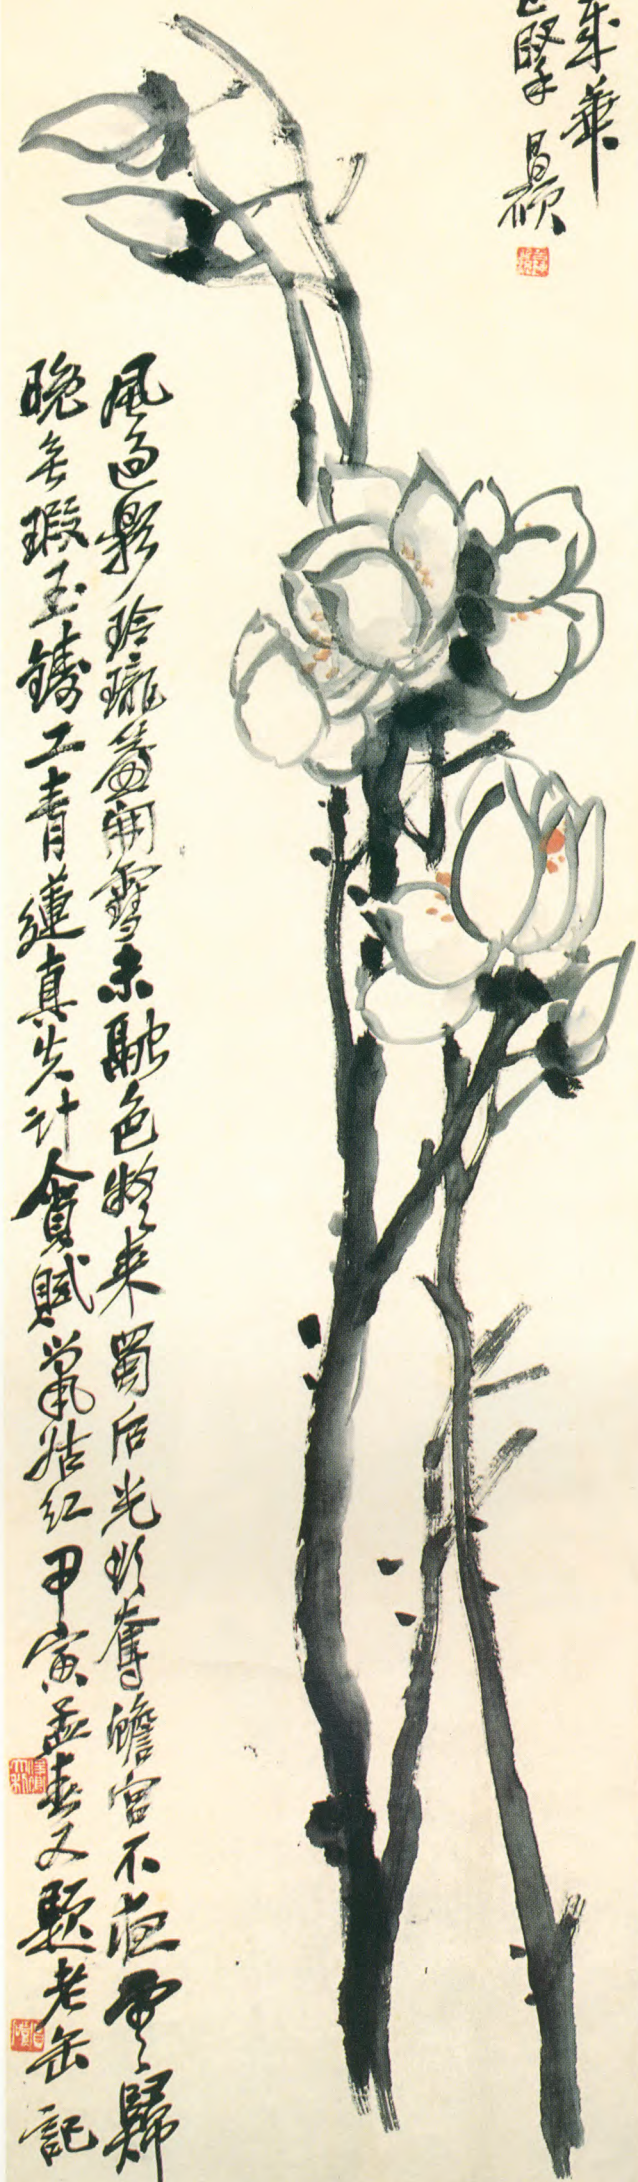 華
昌碩
風過影玲瓏開雪未融色疑來蜀后光欲奪蟾宮不夜雲歸
晚無瑕玉鑄工青蓮真失計貪賦鼠姑紅甲寅孟春又題老缶記